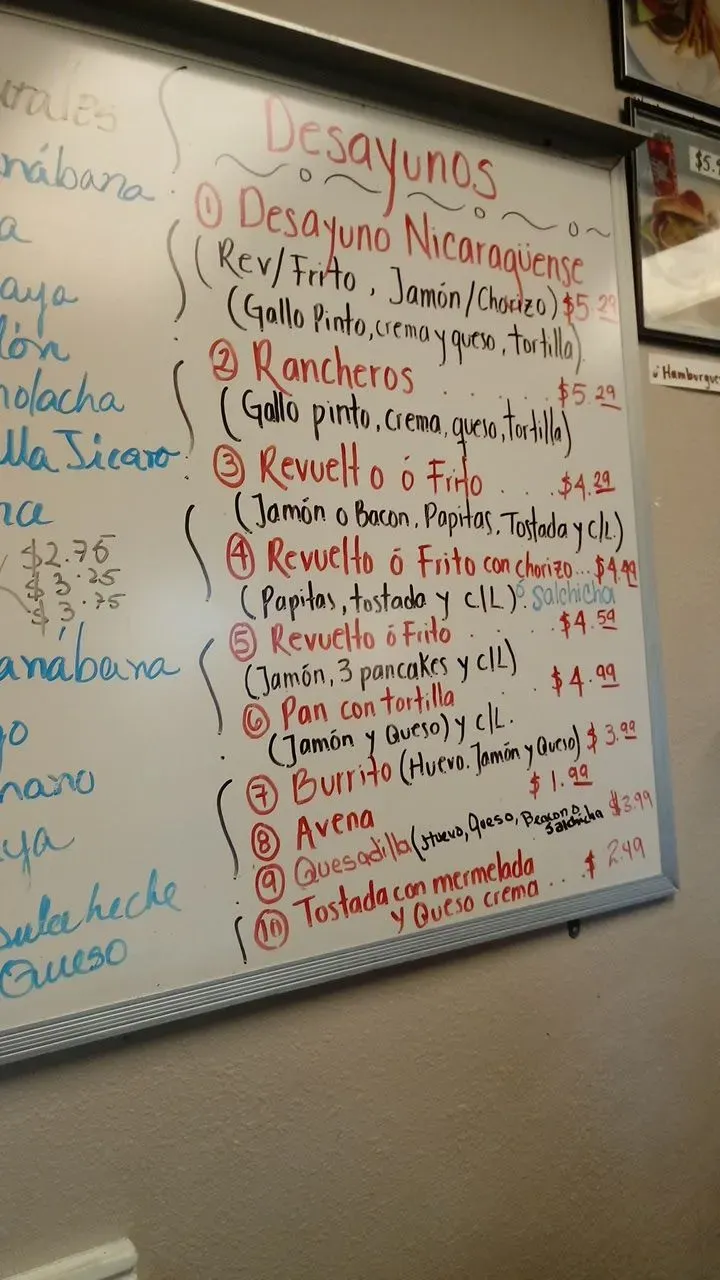 Desayunos
① Desayuno Nicaragüense
(Rev/Frito, Jamón/Chorizo) $5.29
(Gallo Pinto, crema y queso, tortilla)
② Rancheros . . . . $5.29
(Gallo pinto, crema, queso, tortilla)
③ Revuelto ó Frito . . . $4.29
(Jamón o Bacon, Papitas, Tostada y c/L)
④ Revuelto ó Frito con chorizo... $4.49
(Papitas, tostada y c/L) ó salchicha
⑤ Revuelto ó Frito . . . . $4.59
(Jamón, 3 pancakes y c/L)
⑥ Pan con tortilla . . . $4.99
(Jamón y Queso) y c/L.
⑦ Burrito (Huevo. Jamón y Queso) $3.99
⑧ Avena $1.99
⑨ Quesadilla (Huevo, Queso, Beacon o salchicha $3.99
⑩ Tostada con mermelada
y Queso crema ... $2.49
urales
nábana
a
aya
lón
nolacha
lla Jicaro
na
$2.75
$3.25
$3.75
anábana
go
nano
ya
Queso
$5.
Hamburgue